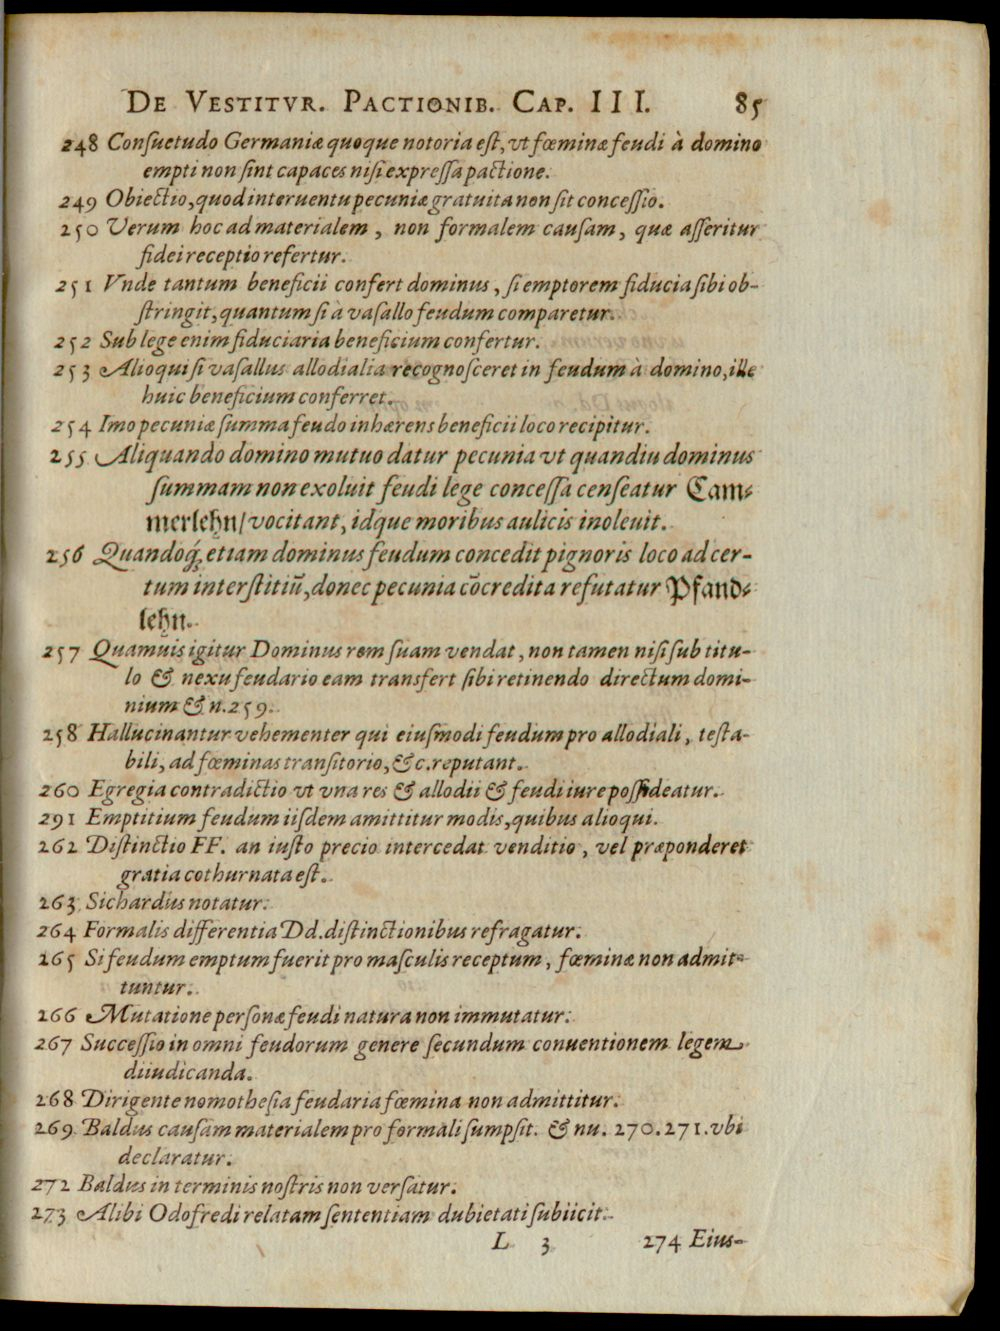 DE VESTITVR. PACTIONIB. CAP. III. 85
248 Conſuetudo Germaniæ quoque notoria eſt, vt fœminæ feudi à domino
empti non ſint capaces niſi expreſſa pactione.
249 Obiectio, quod interuentu pecuniæ gratuita non ſit conceſſio.
250 Verum hoc ad materialem, non formalem cauſam, quæ aſſeritur
fidei receptio refertur.
251 Vnde tantum beneficii confert dominus, ſi emptorem fiducia ſibi ob-
ſtringit, quantum ſi à vaſallo feudum comparetur.
252 Sub lege enim fiduciaria beneficium confertur.
253 Alioqui ſi vaſallus allodialia recognoſceret in feudum à domino, ille
huic beneficium conferret.
254 Imo pecuniæ ſumma feudo inhærens beneficii loco recipitur.
255 Aliquando domino mutuo datur pecunia vt quandiu dominus
ſummam non exoluit feudi lege conceſſa cenſeatur Cam⸗
merlehn/ vocitant, idque moribus aulicis inoleuit.
256 Quandoq́; etiam dominus feudum concedit pignoris loco ad cer-
tum interſtitiũ, donec pecunia cōcredita refutatur Pfand⸗
lehn.
257 Quamuis igitur Dominus rem ſuam vendat, non tamen niſi ſub titu-
lo & nexu feudario eam transfert ſibi retinendo directum domi-
nium & n. 259.
258 Hallucinantur vehementer qui eiuſmodi feudum pro allodiali, teſta-
bili, ad fœminas tranſitorio, &c. reputant.
260 Egregia contradictio vt vna res & allodii & feudi iure poſſideatur.
291 Emptitium feudum iiſdem amittitur modis, quibus alioqui.
262 Diſtinctio FF. an iuſto precio intercedat venditio, vel præponderet
gratia cothurnata eſt.
263 Sichardus notatur.
264 Formalis differentia Dd. diſtinctionibus refragatur.
265 Si feudum emptum fuerit pro maſculis receptum, fœminæ non admit-
tuntur.
266 Mutatione perſonæ feudi natura non immutatur.
267 Succeſſio in omni feudorum genere ſecundum conuentionem legem
diiudicanda.
268 Dirigente nomotheſia feudaria fœmina non admittitur.
269 Baldus cauſam materialem pro formali ſumpſit. & nu. 270. 271. vbi
declaratur.
272 Baldus in terminis noſtris non verſatur.
273 Alibi Odofredi relatam ſententiam dubietati ſubiicit.
L 3 274 Eius-